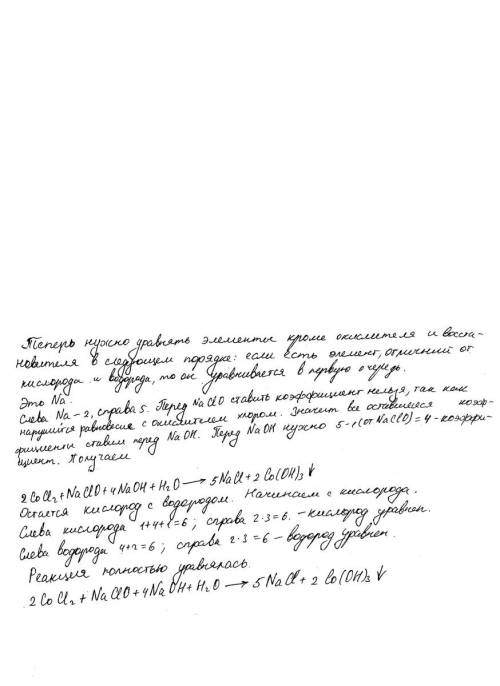 Теперь нужно уравнять элементы кроме окислителя и восста-
новителя в следующем порядке: если есть элемент, отличный от
кислорода и водорода, то он уравнивается в первую очередь.
Это Na.
Слева Na – 2, справа 5. Перед NaClO ставить коэффициент нельзя, так как
нарушится равновесие с окислителем хлором. Значит все оставшиеся коэф-
фициенты ставим перед NaOH. Перед NaOH нужно 5-1(от NaClO)=4-коэффи-
циент. Получаем
2CoCl₂+NaClO+4NaOH+H₂O → 5NaCl+2Co(OH)₃↓
Остается кислород с водородом. Начинаем с кислорода.
Слева кислорода 1+4+1=6; справа 2·3=6. – кислород уравнен.
Слева водорода 4+2=6; справа 2·3=6 – водород уравнен.
Реакция полностью уравнялась.
2CoCl₂+NaClO+4NaOH+H₂O → 5NaCl+2Co(OH)₃↓